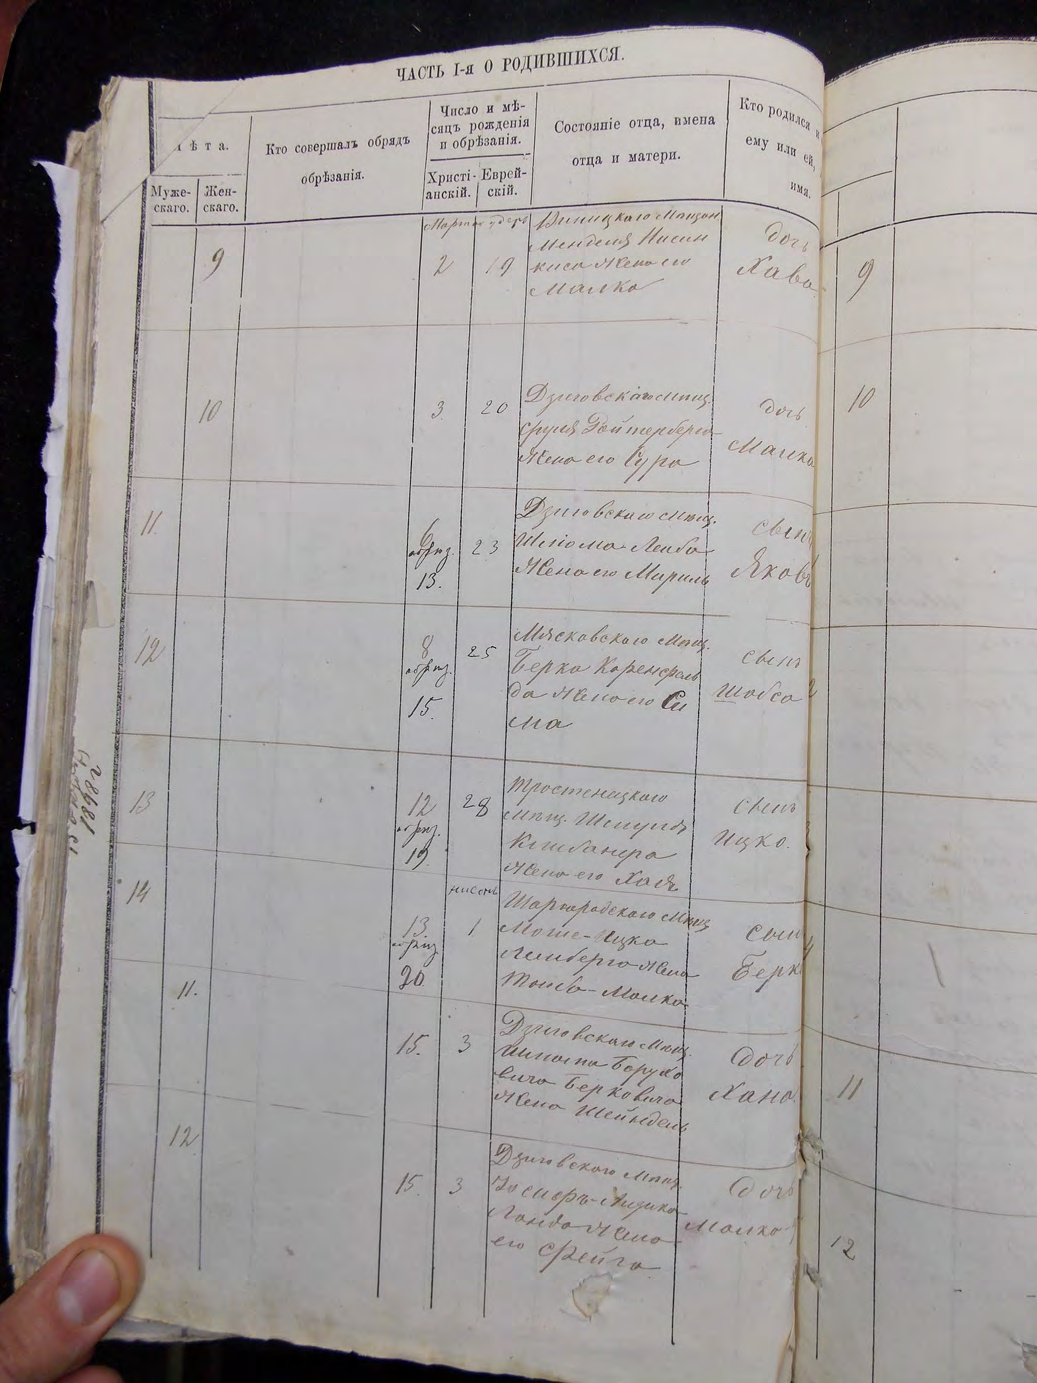 ЧАСТЬ I-я О РОДИВШИХСЯ.
Лѣта.
Муже-
скаго.
Жен-
скаго.
Кто совершалъ обрядъ
обрѣзанія.
Число и мѣ-
сяцъ рожденія
и обрѣзанія.
Христі-
анскій.
Еврей-
скій.
Состояніе отца, имена
отца и матери.
Кто родился и
ему или ей,
имя.
9
Марта
2
19
Виницкаго Мещан
Менделя
жена его
Малка
дочь
Хава
9
10
3
20
Дзиговскаго мѣщ.
Сруля Гойтерберга
жена его Сура
дочь
Малка
10
11.
6
обрѣз.
13.
23
Дзиговскаго мѣщ.
Шлома Лейба
жена его Мариль
сынъ
Яковъ
12
8
обрѣз.
15.
25
Мясковскаго мѣщ.
Берка Коренфель
да жена его Си
ма
сынъ
Шабса
13
12
обрѣз.
19.
28
Тростеницкаго
мѣщ.
жена его Хая
сынъ
Ицко.
14
нисонъ
13.
обрѣз
20
1
Шаргородскаго мѣщ
Моше-Ицка
Лемберга жена
Тойба-Малка
сынъ
Берк
11.
15.
3
Дзиговскаго мѣщ.
Боруха
вича Берковича
жена Шейндель
дочь
Хана.
11
12
15.
3
Дзиговскаго мѣщ.
Ланда жена
его Фейга
дочь
Малка
12